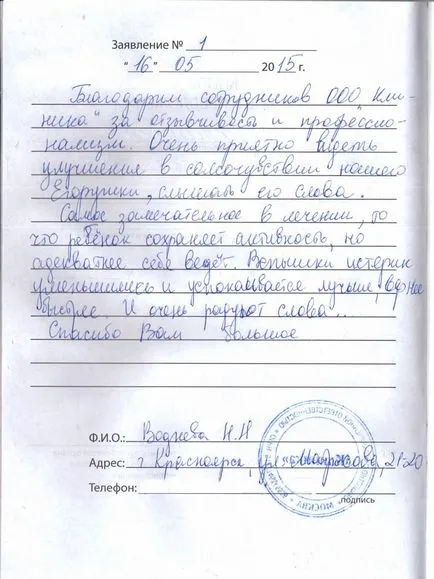 Заявление № 1
"16" 05 2015 г.
Благодарим сотрудников ООО „Кли-
ника" за отзывчивость и профессио-
нализм. Очень приятно видеть
улучшения в самочувствии нашего
Егорушки, слышать его слова.
Самое замечательное в лечении, то
что ребёнок сохраняет активность, но
адекватнее себя ведёт. Вспышки истерик
уменьшились и успокаивается лучше,
быстрее. И очень радуют слова...
Спасибо Вам большое
Ф.И.О.: Н.Н
Адрес: г Красноярск, ул
Телефон:
подпись
МОСКВА